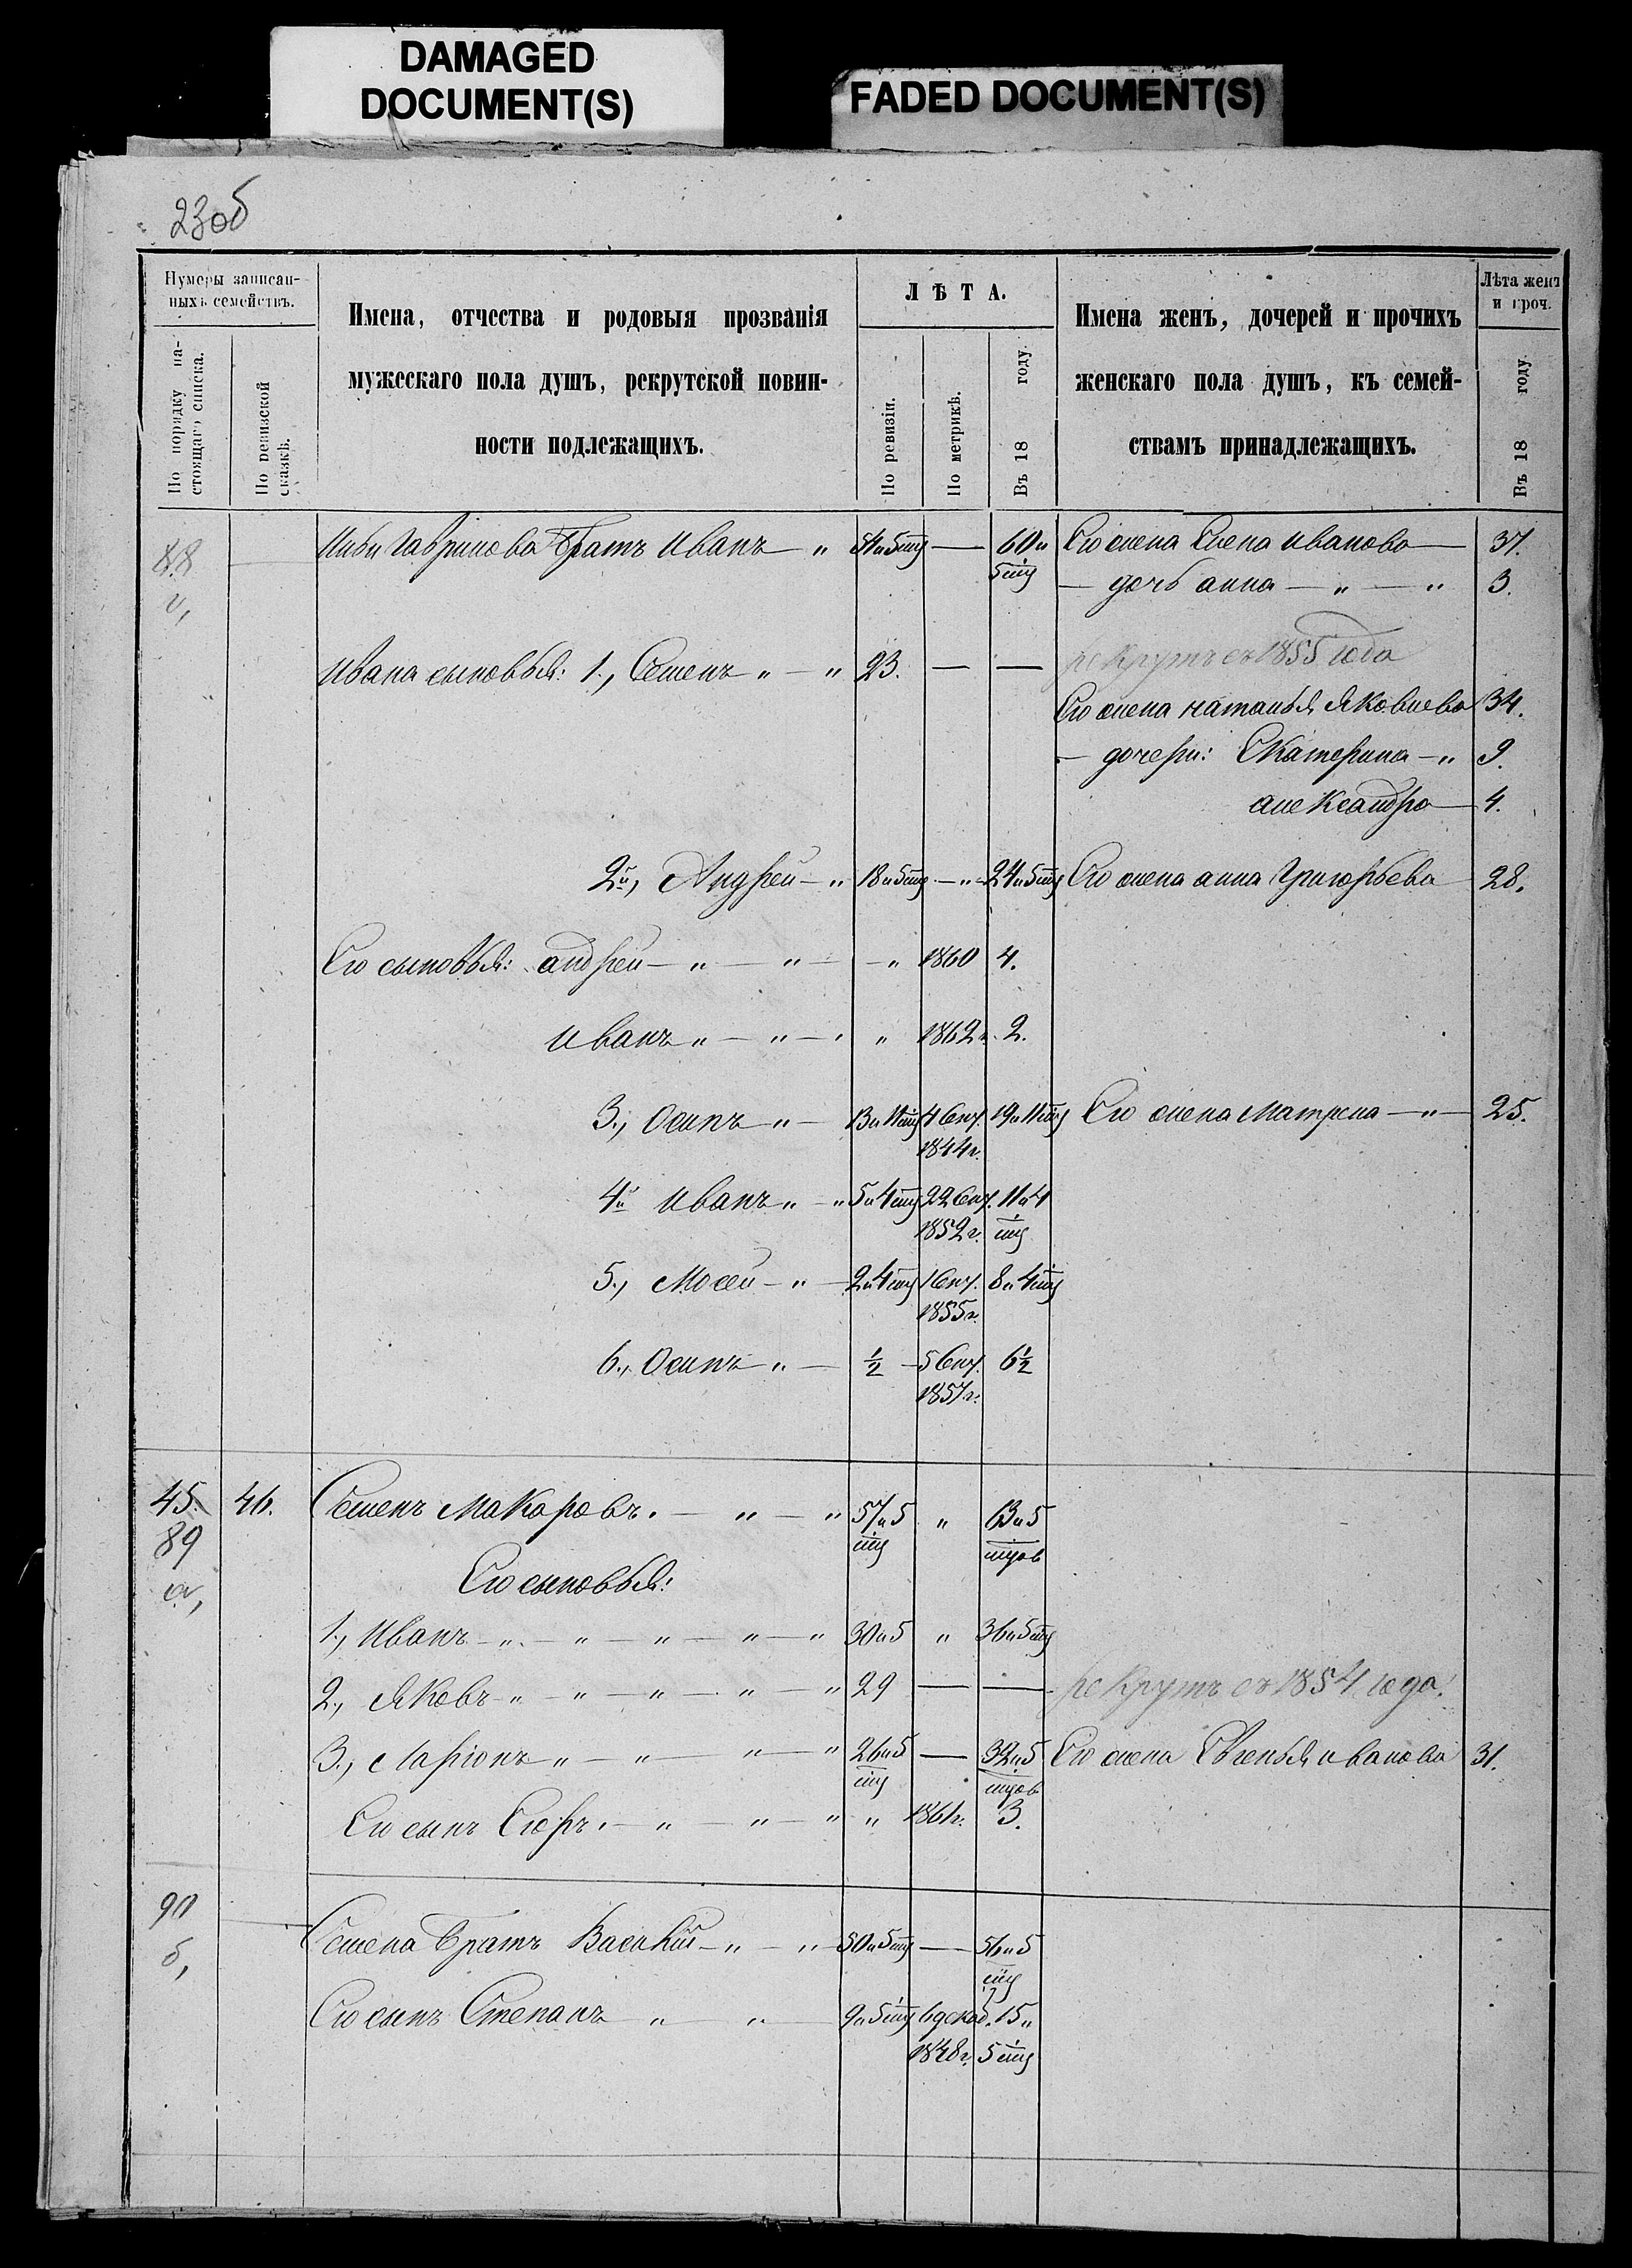 DAMAGED
DOCUMENT(S)
FADED DOCUMENT(S)
23об
Нумеры записан-
ныхъ семействъ.
По порядку на-
стоящаго списка.
По ревизской
сказкѣ.
Имена, отчества и родовыя прозванія
мужескаго пола душъ, рекрутской повин-
ности подлежащихъ.
ЛѢТА.
По ревизіи.
По метрикѣ.
Въ 18 году.
Имена женъ, дочерей и прочихъ
женскаго пола душъ, къ семей-
ствамъ принадлежащихъ.
Лѣта женъ
и проч.
Въ 18 году.
88 Гаврилова братъ Иванъ — „ 54 и 5 мц — 60 и Его жена Елена Иванова — 37.
г, 5 мц — дочь Анна — „ — „ 3.
Ивана сыновья: 1., Семенъ „ — „ 23. — — рекрутъ съ 1855 года
Его жена Наталья Яковлева 34.
— дочери: Екатерина — „ 9.
Александра — 4.
2й, Андрей — „ 18 и 5 мц — „ — 24 и 5 мц Его жена Анна Григорьева 28.
Его сыновья: Андрей — „ — „ — „ 1860 4.
Иванъ „ — „ — „ „ 1862 г. 2.
3., Осипъ „ — 13 и 11 мц 4 Сент. 19 и 11 мц Его жена Матрена — „ — 25.
1844 г.
4й Иванъ „ — „ 5 и 4 мц 22 Сент. 11 и 4
1852 г. мц
5., Мосей — „ — 2 и 4 мц 1 Сент. 8 и 4 мц
1855 г.
6., Осипъ „ — ½ — 5 Сент. 6½
1857 г.
45. 46. Семенъ Макаровъ. — „ — „ 57 и 5 „ 63 и 5
89 мц мцов
а, Его сыновья:
1., Иванъ — „ — „ — „ — „ — „ 30 и 5 „ 36 и 5 мц
2., Яковъ — „ — „ — „ — „ — „ 29 — — рекрутъ съ 1854 года.
3., Ларіонъ „ — „ — „ — „ 26 и 5 — 32 и 5 Его жена Евгенья Иванова 31.
мц мцов
Его сынъ Егоръ. — „ — „ — „ „ 1861 г. 3.
90 Семена братъ Василій — „ — „ 50 и 5 мц — 56 и 5
б, мц
Его сынъ Степанъ „ — „ — 9 и 5 мц 6 декаб. 15 и
1848 г. 5 мц